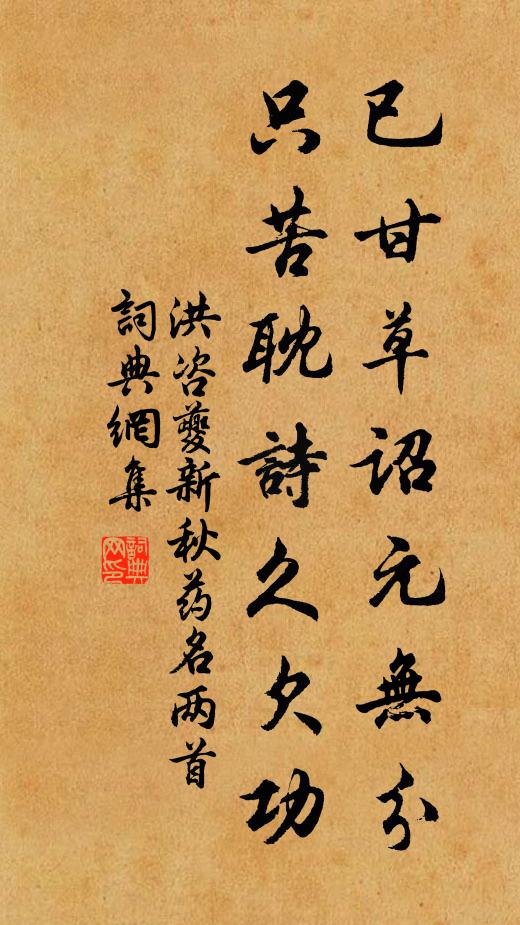 已甘草詔元無分
只苦耽詩久欠功
洪咨夔新秋药名两首
詞典網集
詞典網印